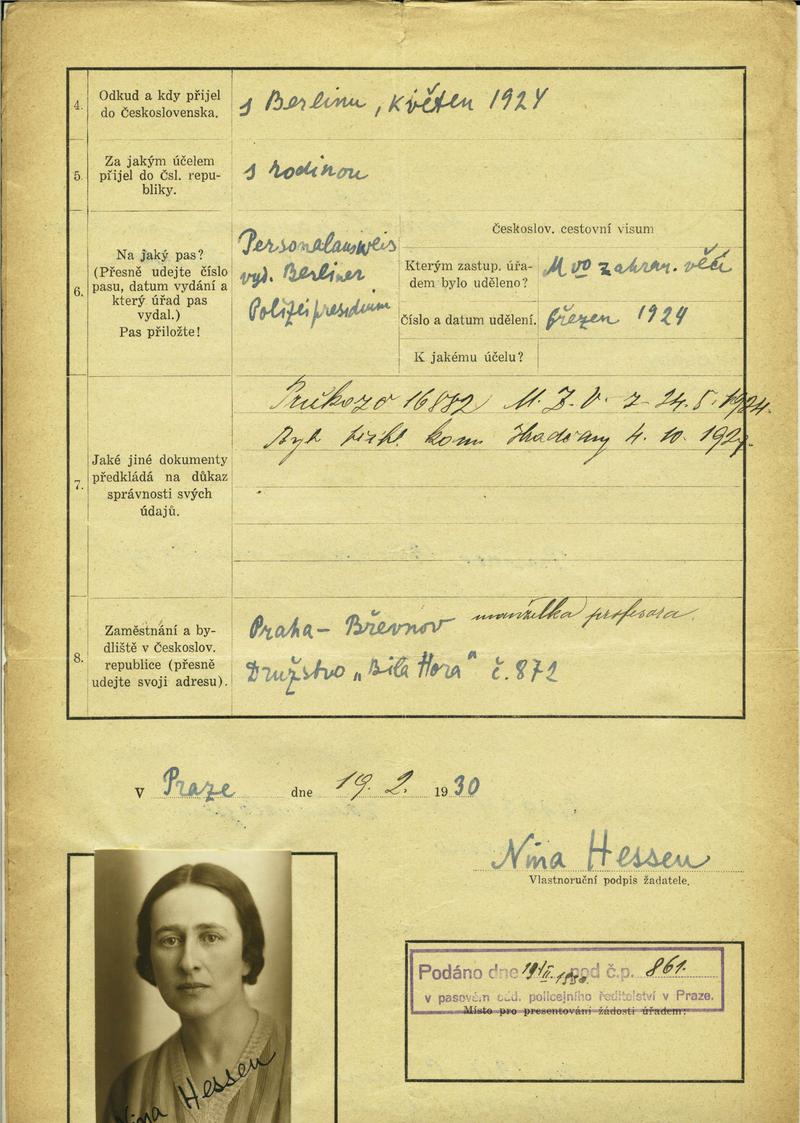 4.
Odkud a kdy přijel
do Československa.
s Berlinu, Květen 1924
5.
Za jakým účelem
přijel do čsl. repu-
bliky.
s rodinou
6.
Na jaký pas?
(Přesně udejte číslo
pasu, datum vydání a
který úřad pas
vydal.)
Pas přiložte!
Personalausweis
vyd. Berliner
Polizeipresidium
Českoslov. cestovní visum
Kterým zastup. úřa-
dem bylo uděleno?
M vo zahran. věcí
Číslo a datum udělení.
březen 1924
K jakému účelu?
7.
Jaké jiné dokumenty
předkládá na důkaz
správnosti svých
údajů.
16882 M. Z. V. z 24. 5. 1924.
kom Hradčany 4. 10. 192
8.
Zaměstnání a by-
dliště v Českoslov.
republice (přesně
udejte svoji adresu).
manželka profesora.
Praha - Břevnov
Družstvo „Bílá Hora" č. 872
V Praze dne 19. 2. 1930
Nina Hessen
Vlastnoruční podpis žadatele.
Podáno dne 19/II. 1930. pod č.p. 861.
v pasovém odd. policejního ředitelství v Praze.
Místo pro presentování žádosti úřadem:
Nina Hessen